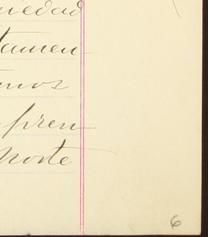 edad
tamen
mos
pren
norte
6